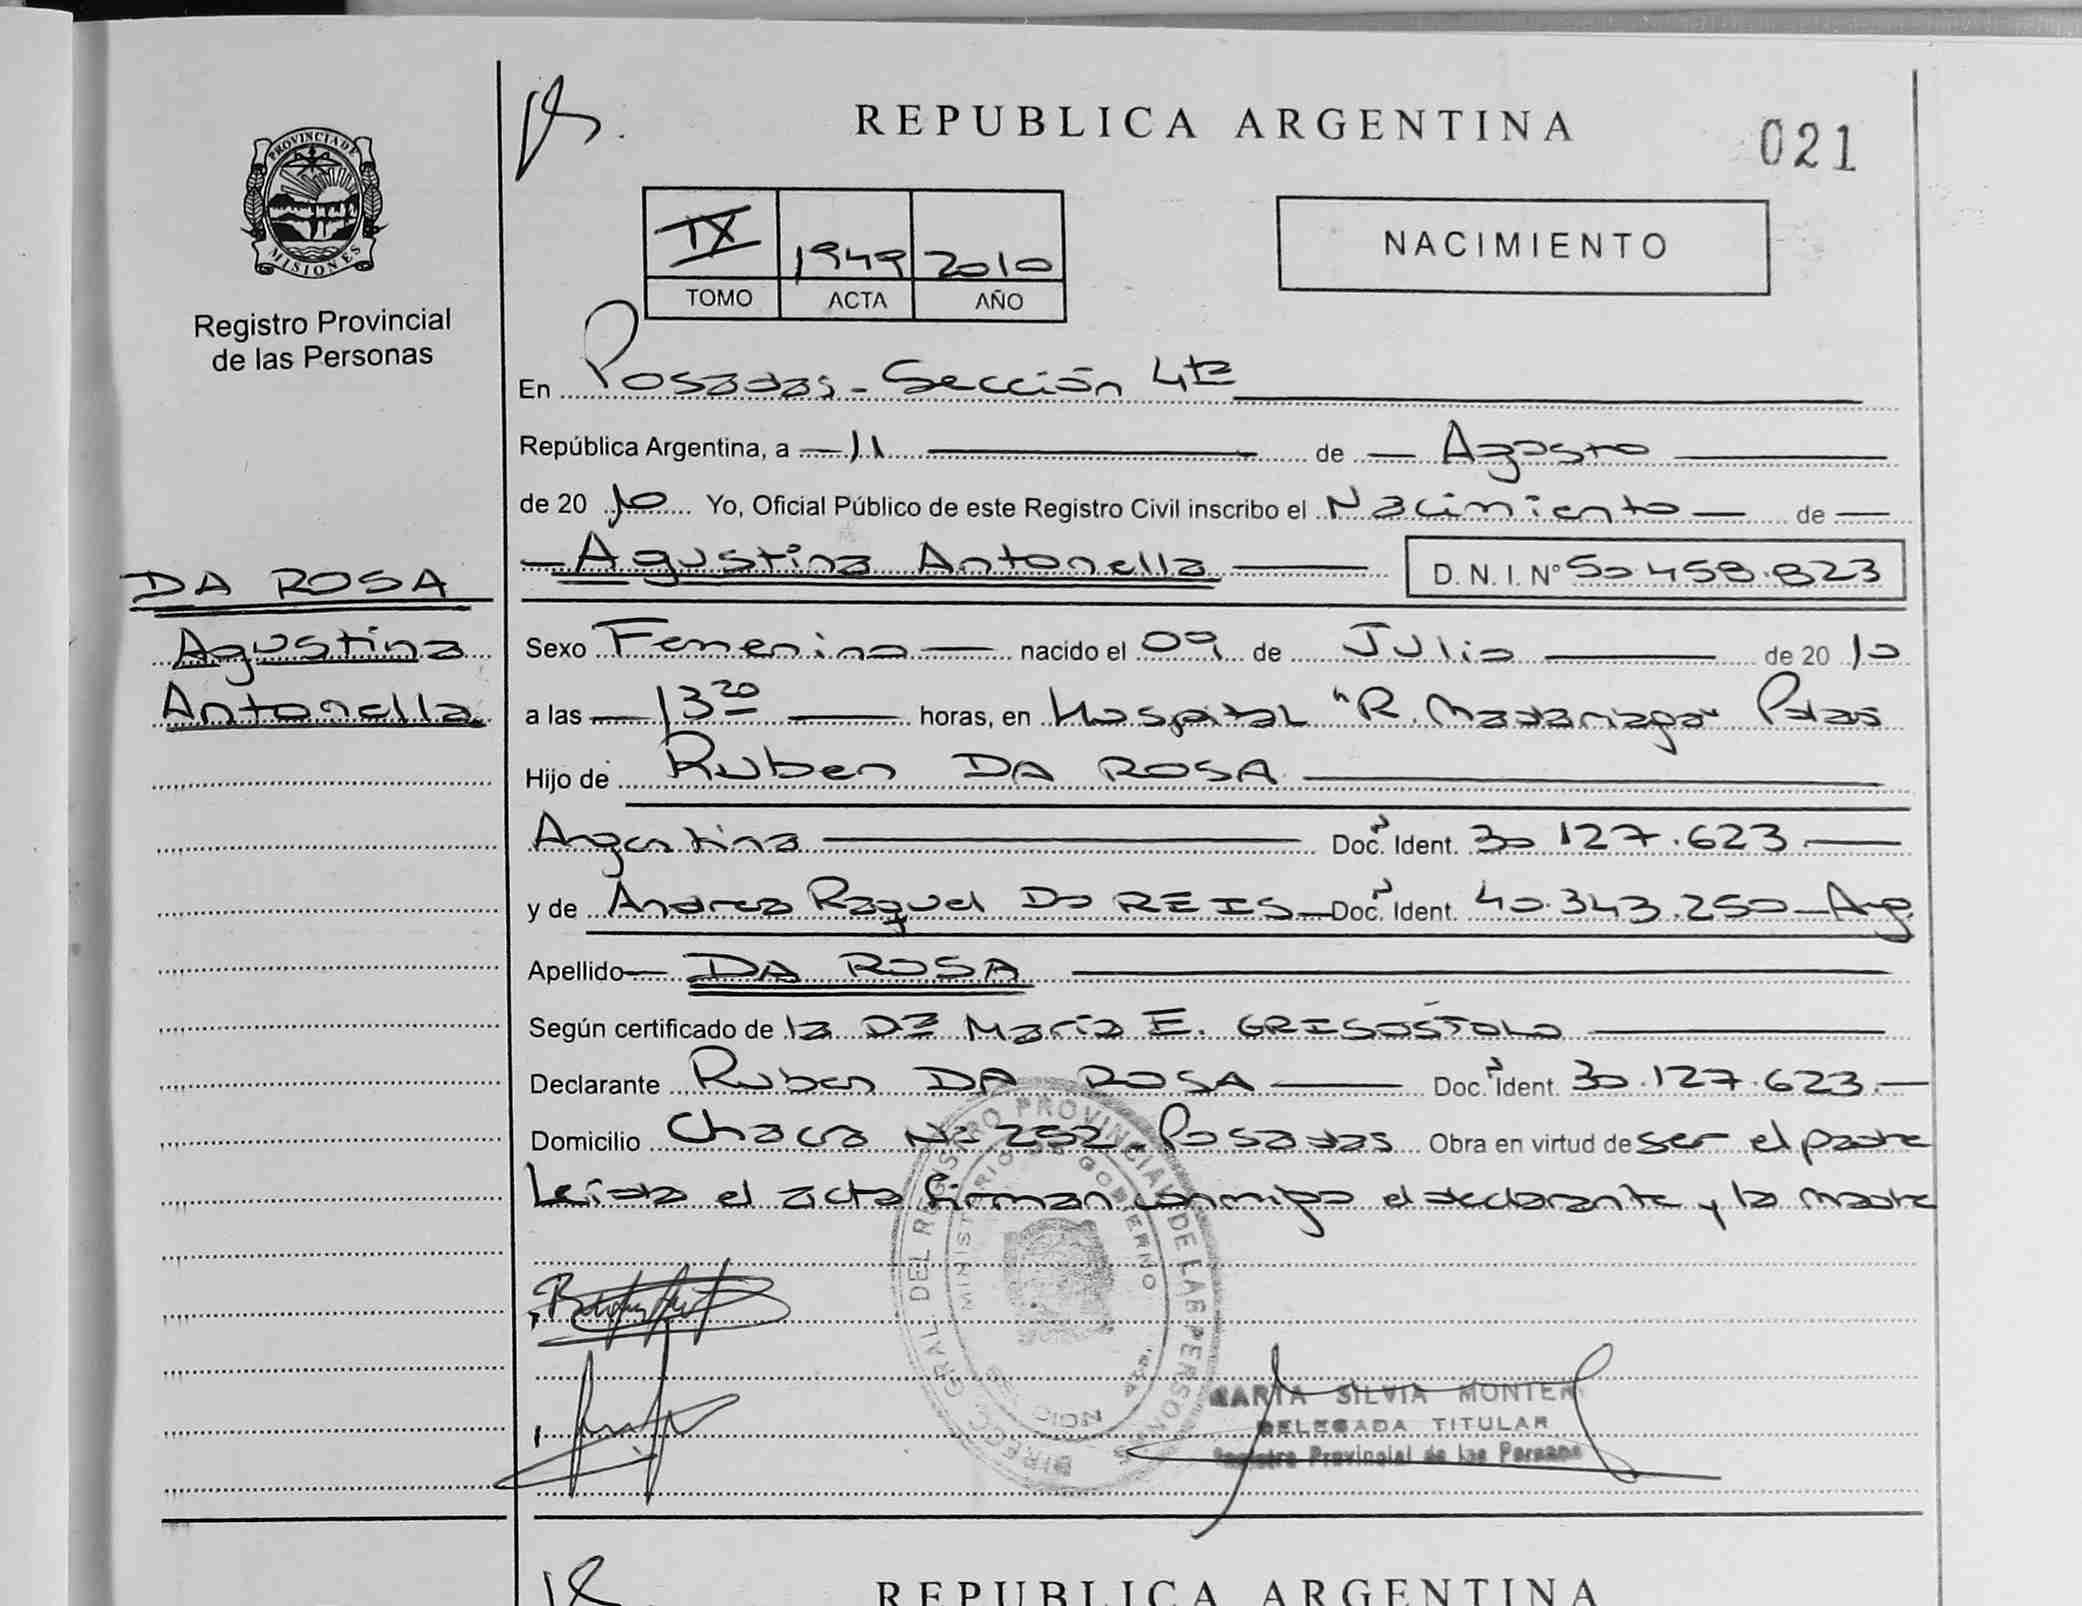 REPUBLICA ARGENTINA
021
PROVINCIA DE
MISIONES
Registro Provincial
de las Personas
IX 1949 2010
TOMO ACTA AÑO
NACIMIENTO
En Posadas - Sección 4ta
República Argentina, a 11 de Agosto
de 2010 Yo, Oficial Público de este Registro Civil inscribo el Nacimiento de
Agustina Antonella D. N. I. Nº 50.458.823
DA ROSA
Agustina
Antonella
Sexo Femenino nacido el 09 de Julio de 2010
a las 13 20 horas, en Hospital "R. Madariaga" Pdas
Hijo de Ruben DA ROSA
Argentina Doc. Ident. 30 127.623
y de Andrea Raquel Do REIS Doc. Ident. 40.343.250 Arg.
Apellido DA ROSA
Según certificado de la Dra Maria E. GRISOSTOLO
Declarante Ruben DA ROSA Doc. Ident. 30.127.623
Domicilio Chacra No 252 - Posadas Obra en virtud de ser el padre
Leída el acta firman conmigo el declarante y la madre
DIRECC. GRAL. DEL REGISTRO PROVINCIAL DE LAS PERSONAS
MINISTERIO DE GOBIERNO
MARIA SILVIA MONTER
DELEGADA TITULAR
Registro Provincial de las Persona
REPUBLICA ARGENTINA